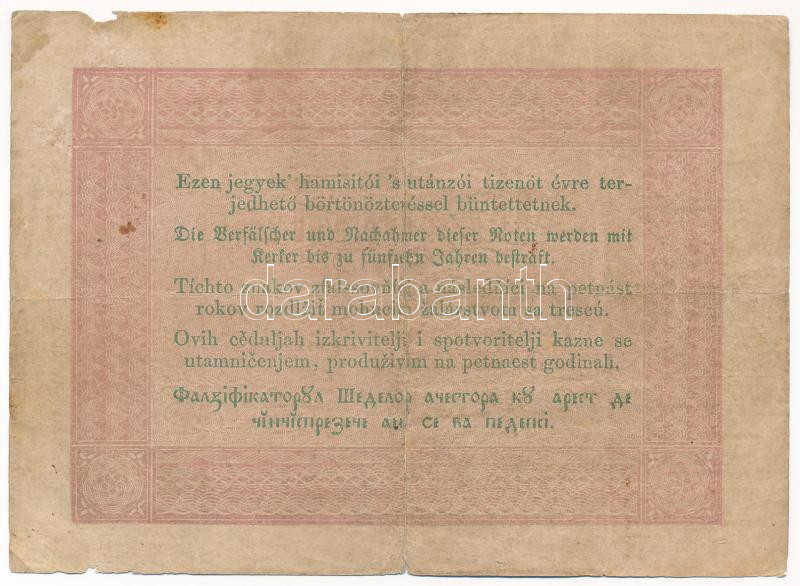 Ezen jegyek' hamisitói 's utánzói tizenöt évre ter-
jedhető börtönöztetéssel büntettetnek.
Die Verfälscher und Nachahmer dieser Noten werden mit
Kerker bis zu fünfzehn Jahren bestraft.
Tíchto znakov a na petnást
rokov sa trescú.
Ovih cĕduljah izkrivitelji i spotvoritelji kazne se
utamničenjem, produživim na petnaest godinah.
Фалзіфікаторꙋл Шеделор ачестора кꙋ арест де
чінчіспрезече ані се ва педепсі.
darabanth